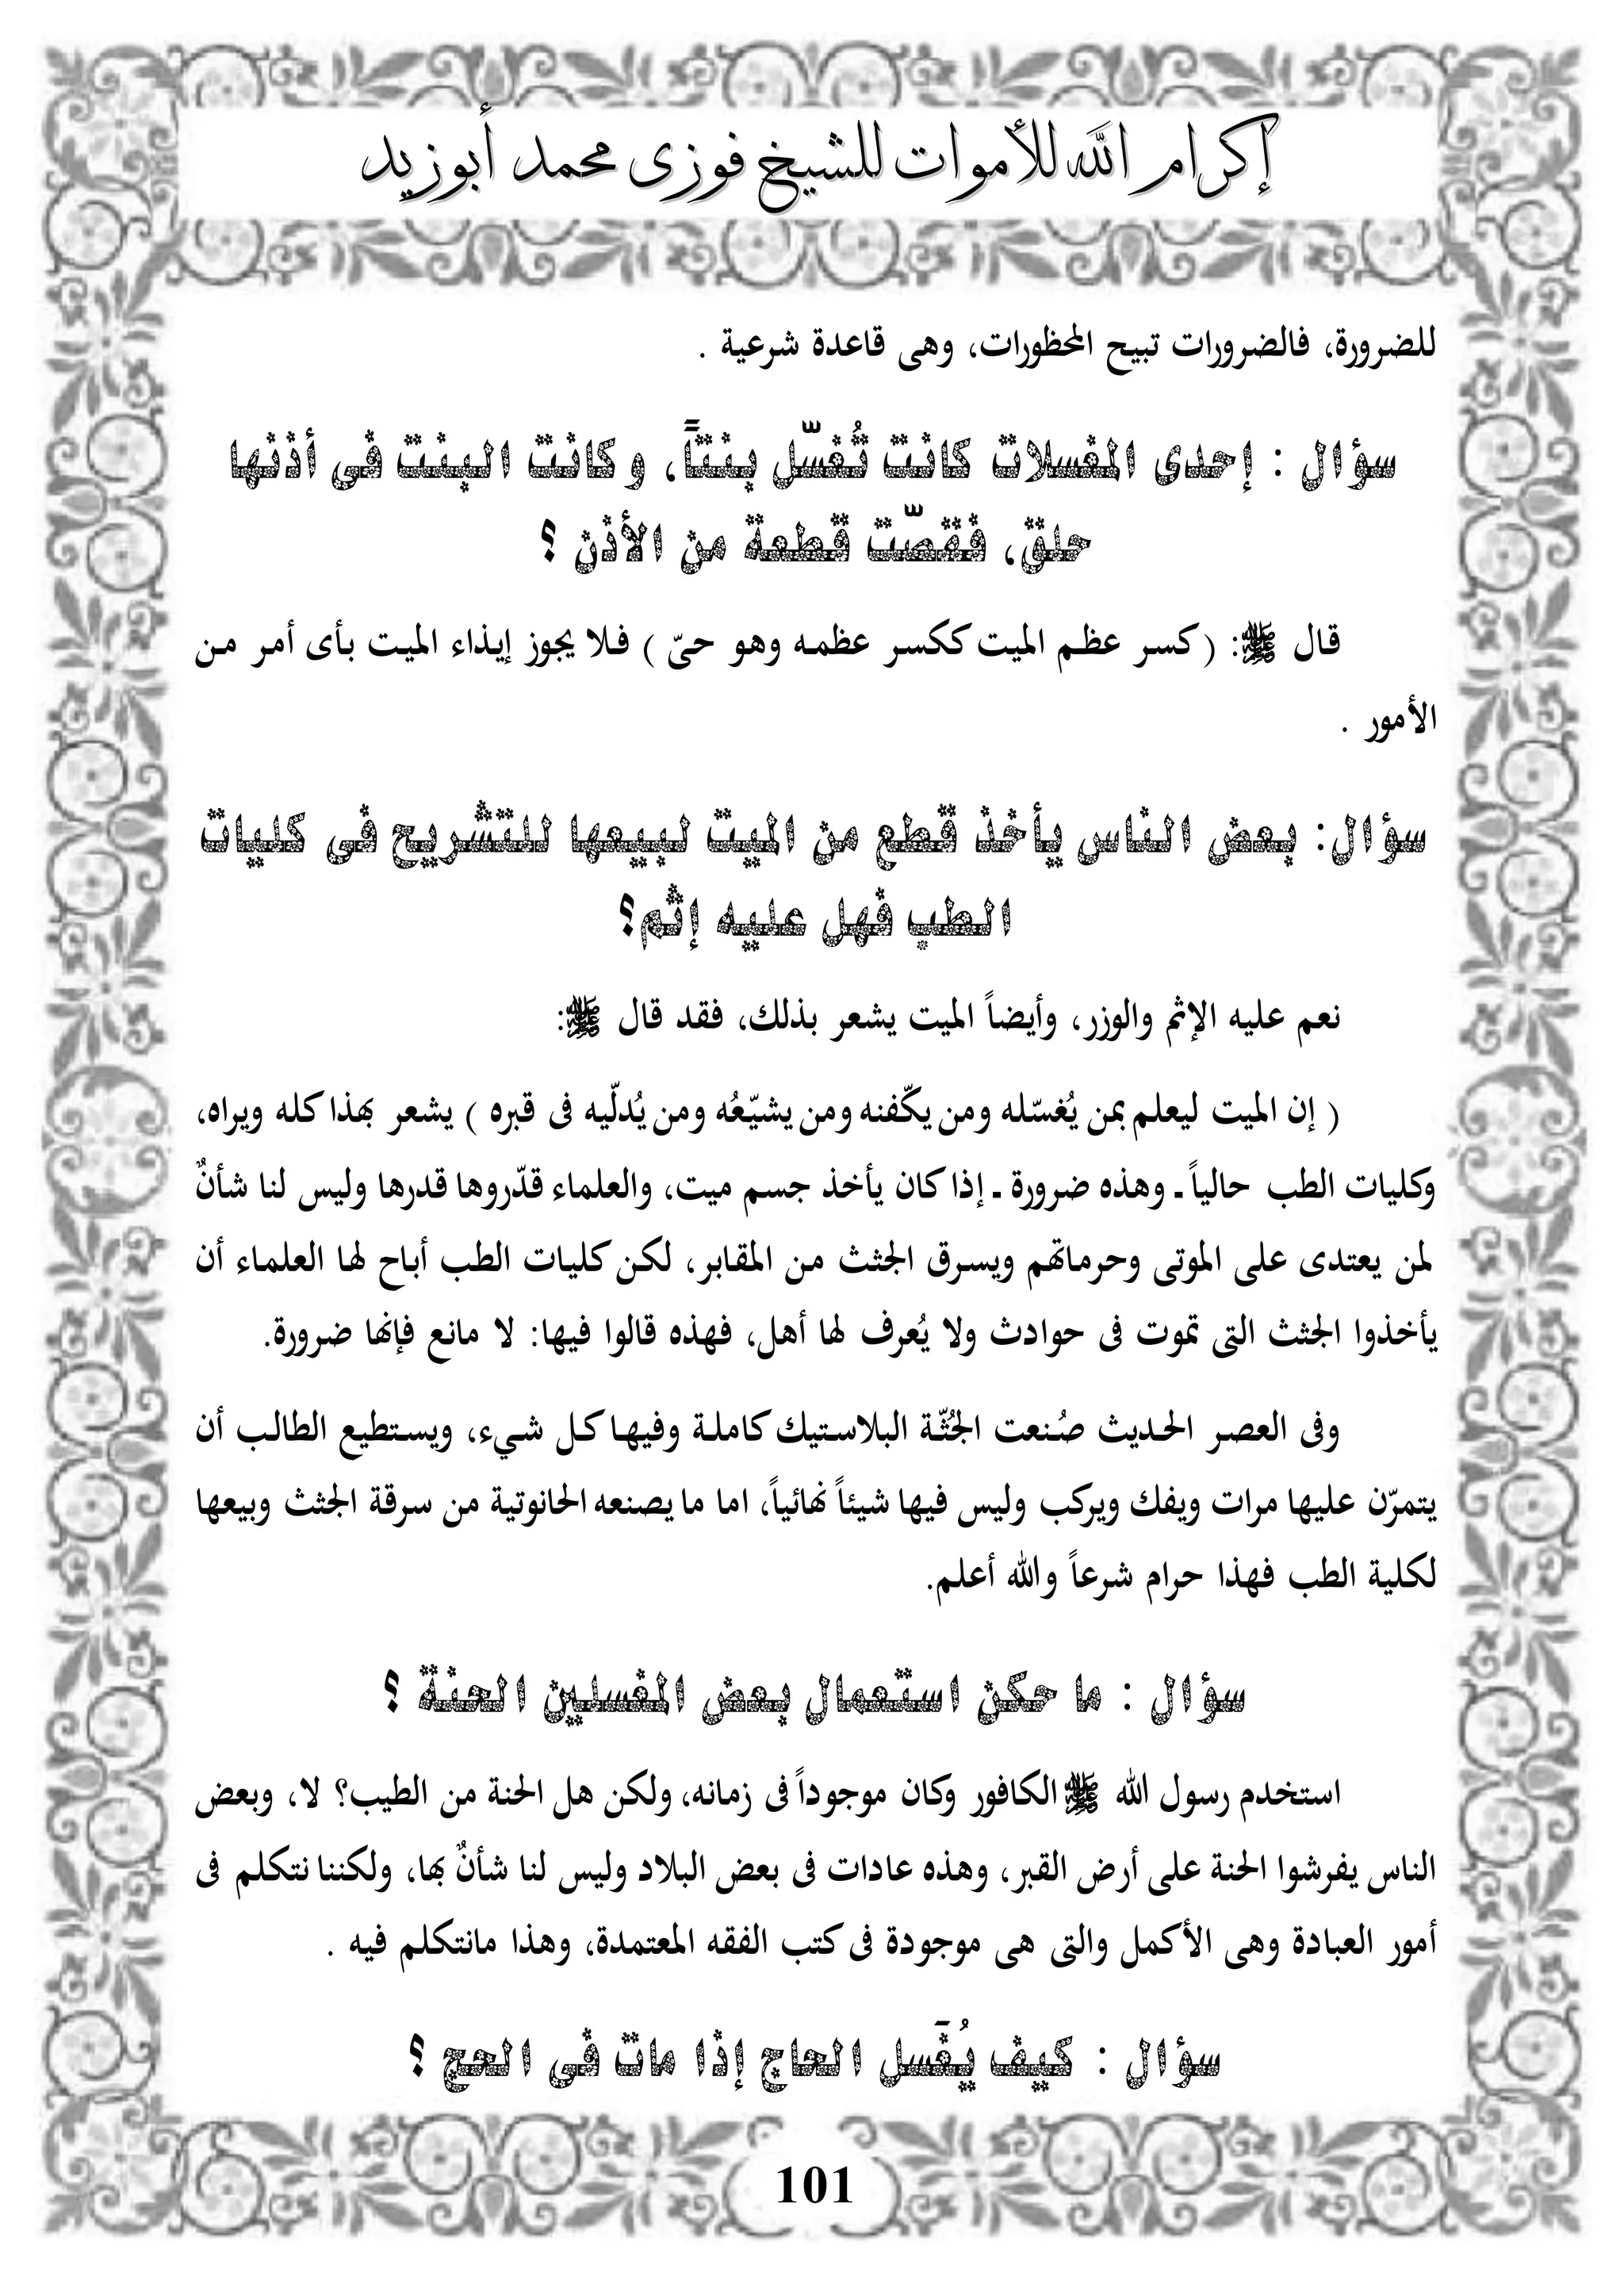 إكرام الله للأموات للشيخ فوزى محمد أبوزيد
للضرورة، فالضرورات تبيح المحظورات، وهى قاعدة شرعية .
سؤال : إحدى المغسلات كانت تُغسّل بنتاً، وكانت البنت فى أذنها
حلق، فقصّت قطعة من الأذن ؟
قال ﷺ: ( كسر عظم الميت ككسر عظمه وهو حىّ ) فلا يجوز إيذاء الميت بأى أمر من
الأمور .
سؤال: بعض الناس يأخذ قطع من الميت لبيعها للتشريح فى كليات
الطب فهل عليه إثم؟
نعم عليه الإثم والوزر، وأيضاً الميت يشعر بذلك، فقد قال ﷺ:
( إن الميت ليعلم بمن يُغسّله ومن يكّفنه ومن يشيّعُه ومن يُدلّيه فى قبره ) يشعر بهذا كله ويراه،
وكليات الطب حالياً ـ وهذه ضرورة ـ إذا كان يأخذ جسم ميت، والعلماء قدّروها قدرها وليس لنا شأنٌ
لمن يعتدى على الموتى وحرماتهم ويسرق الجثث من المقابر، لكن كليات الطب أباح لها العلماء أن
يأخذوا الجثث التى تموت فى حوادث ولا يُعرف لها أهل، فهذه قالوا فيها: لا مانع فإنها ضرورة.
وفى العصر الحديث صُنعت الجُثّة البلاستيك كاملة وفيها كل شيء، ويستطيع الطالب أن
يتمرّن عليها مرات ويفك ويركب وليس فيها شيئاً نهائياً، اما ما يصنعه الحانوتية من سرقة الجثث وبيعها
لكلية الطب فهذا حرام شرعاً والله أعلم.
سؤال : ما حكن استعمال بعض المغسلين الحنة ؟
استخدم رسول الله ﷺ الكافور وكان موجوداً فى زمانه، ولكن هل الحنة من الطيب؟ لا، وبعض
الناس يفرشوا الحنة على أرض القبر، وهذه عادات فى بعض البلاد وليس لنا شأنٌ بها، ولكننا نتكلم فى
أمور العبادة وهى الأكمل والتى هى موجودة فى كتب الفقه المعتمدة، وهذا مانتكلم فيه .
سؤال : كيف يُغَسل الحاج إذا مات فى الحج ؟
101